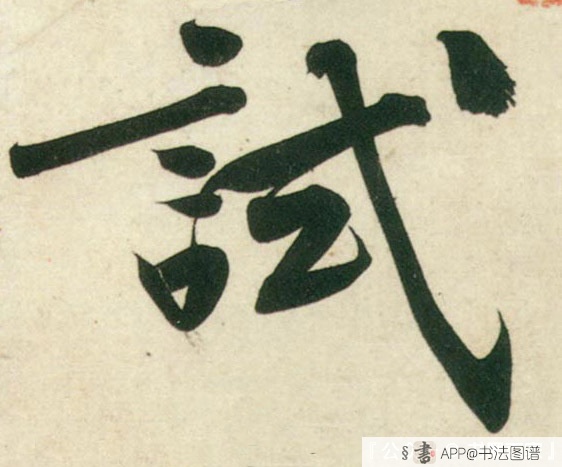 試
§書 APP@书法图谱